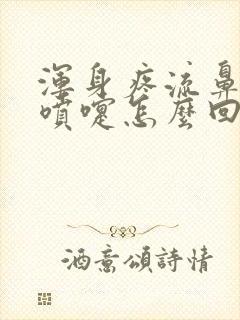 渾身疼流鼻
噴嚏怎麼回
酒意頌詩情